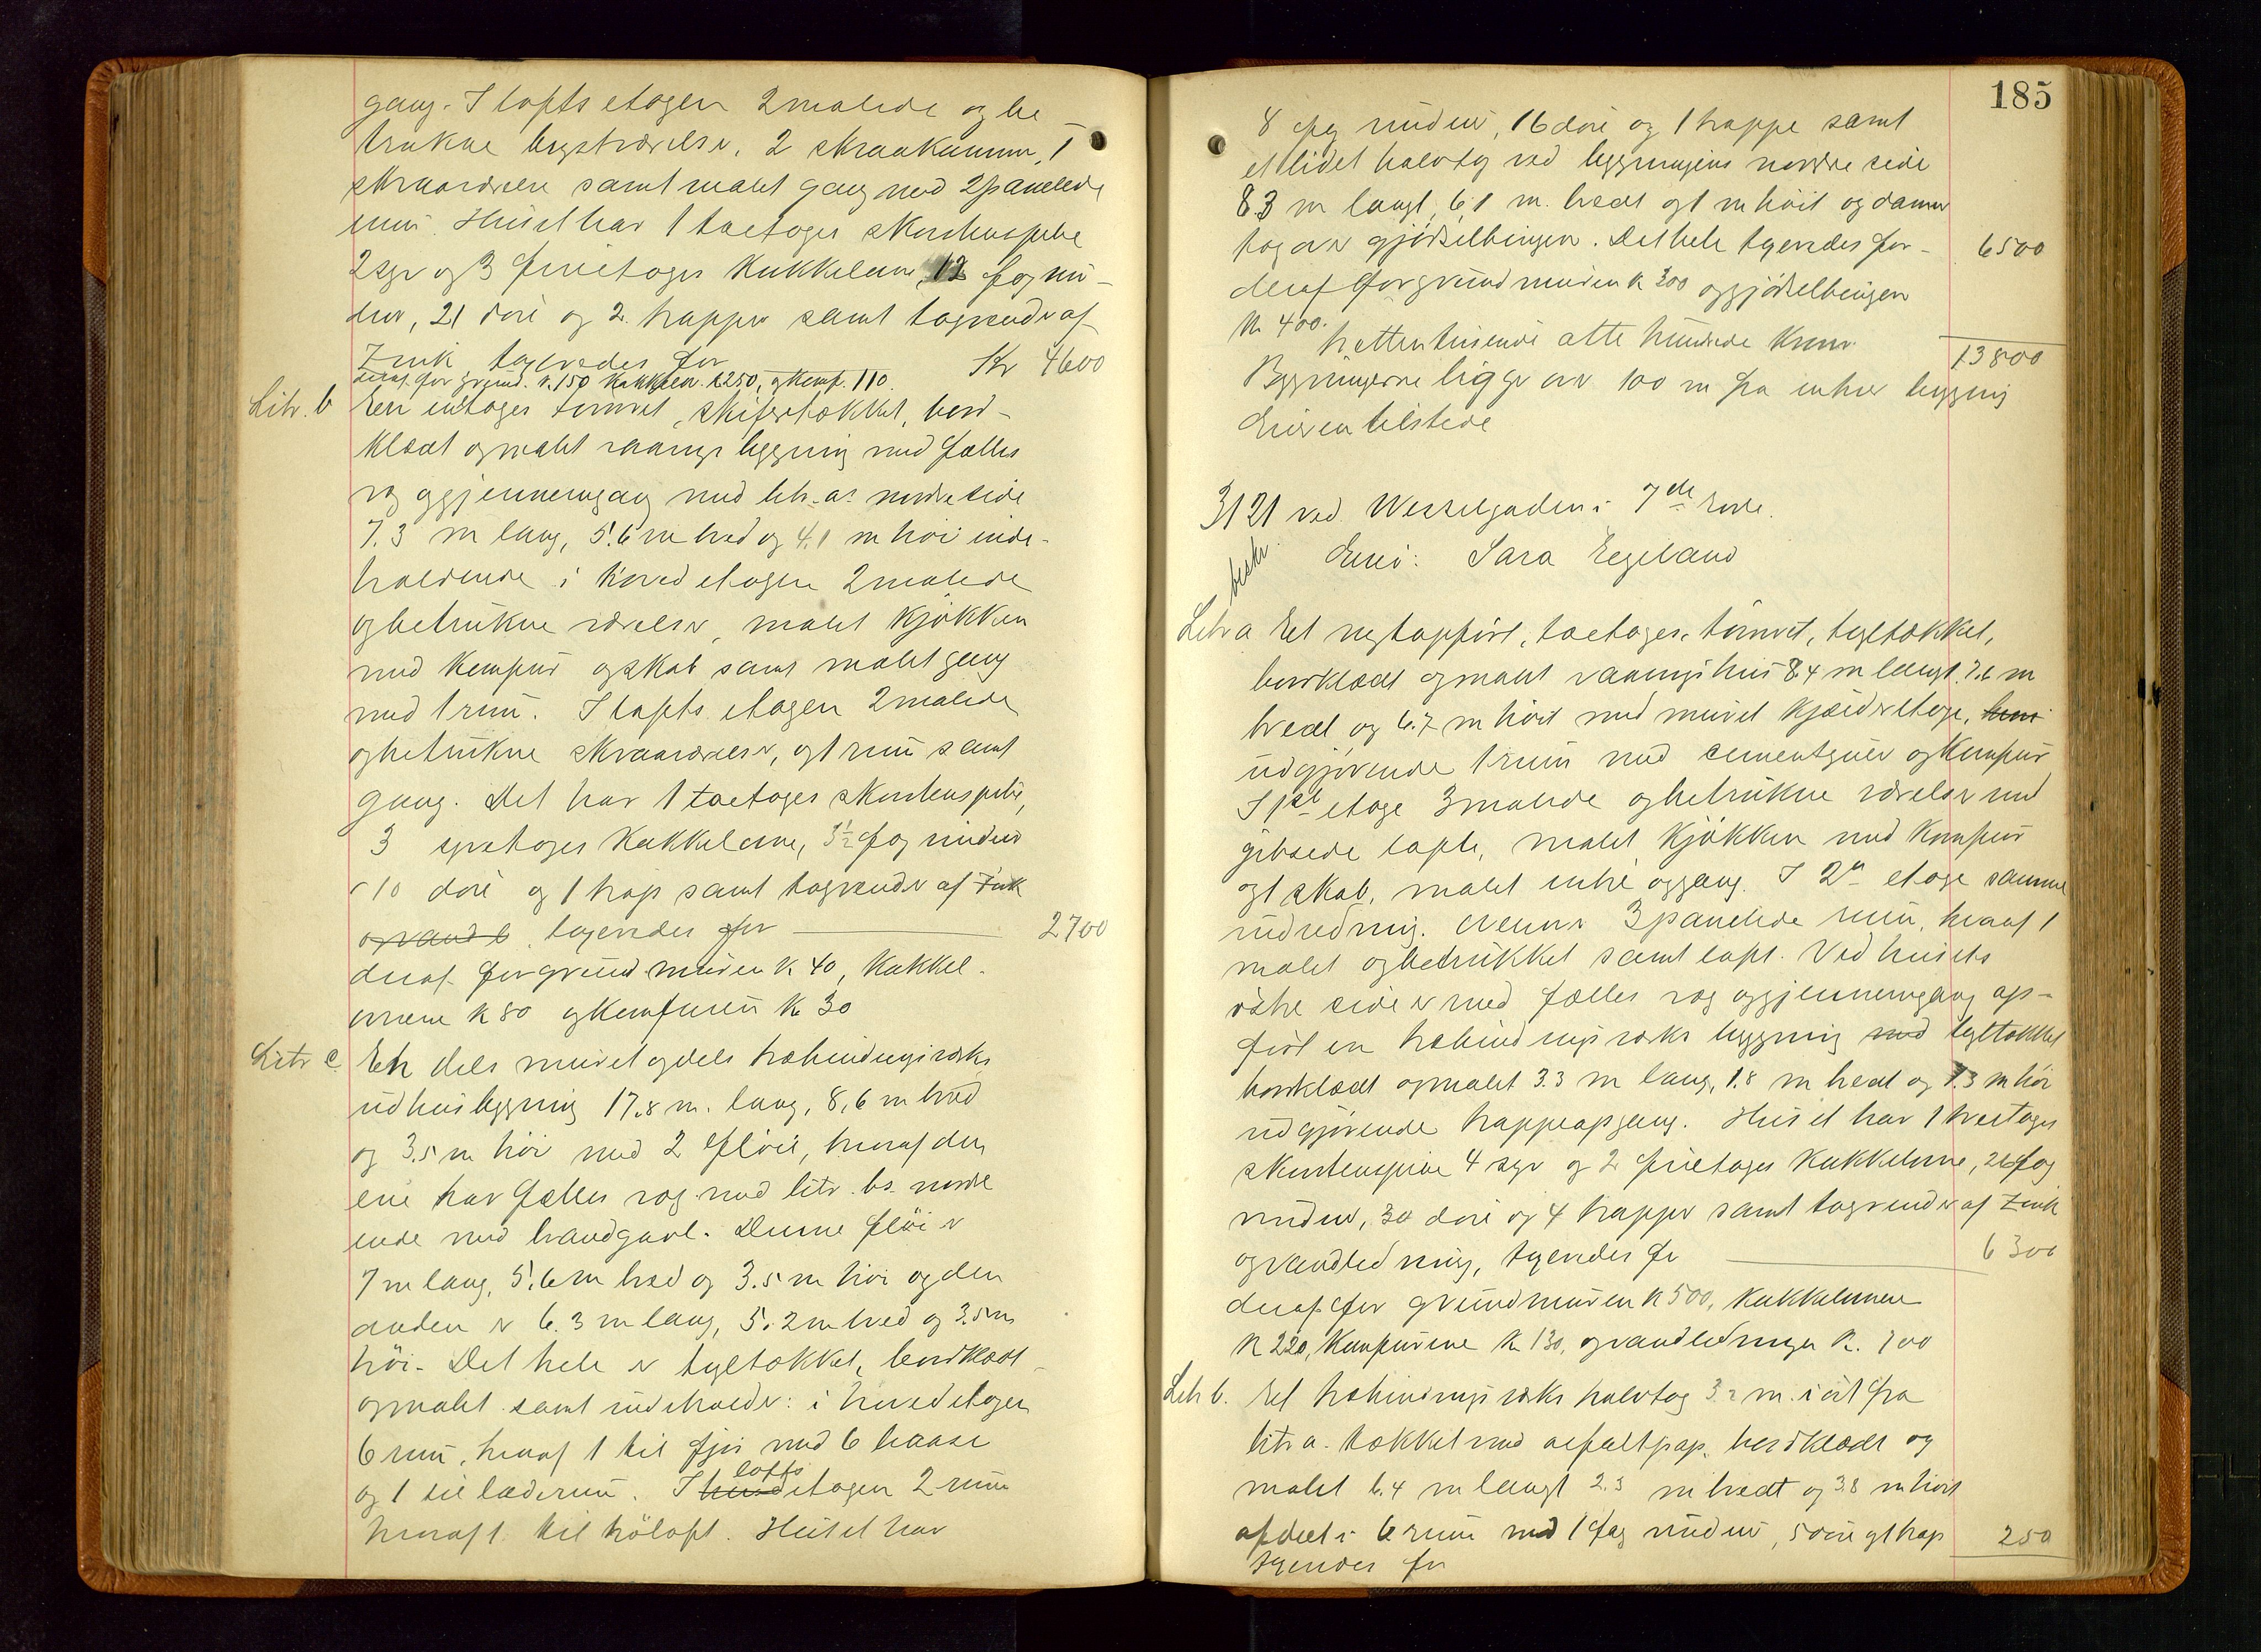 gang. I loftsetagen 2 malede og be
trukne kvistværelser, 2 skraakammer, 1
skraaværelse samt malet gang med 2 panelede
rum. Huset har 1 toetages skorstenspibe
2 syv og 3 fireetages kakkelovne, 12 fag vin-
duer, 21 döre og 2 trapper samt tagrender af
Zink taxeredes for Kr 4600
deraf for grund. K. 150 kakkelov. K 250, og Komf. 110.
Litr. b En enetages tömret, skifertækket, bord-
klædt og malet vaanings bygning med fælles
væg og gjennemgang med litr. as nordre side
7.3 m lang, 5.6 m bred og 4.1 m höi inde-
holdende i hovedetagen 2 malede
og betrukne værelser, malet kjökken
med komfur og skab samt malet gang
med 1 rum. I loftsetagen 2 malede
og betrukne skraaværelser, og 1 rum samt
gang. Det har 1 toetages skorstenspibe,
3 syvetages kakkelovne, 3½ fag vinduer
10 döre og 1 trap samt tagrender af Zink
og vandl taxeredes for 2700
deraf for grundmuren K 40, kakkel-
ovnene K 80 og komfuren K 30
Litr c. En dels muret og dels træbindingsværks
udhusbygning 17.8 m. lang, 8,6 m bred
og 3.5 m höi med 2 flöie, hvoraf den
ene har fælles væg med litr. bs nordre
ende med brandgavl. Denne flöi er
7 m lang, 5.6 m bred og 3.5 m höi og den
anden er 6.3 m lang, 5.2 m bred og 3.5 m
höi. Det hele er tegltækket, bordklædt
og malet samt indeholder: i hovedetagen
6 rum, hvoraf 1 til fjös med 6 baase
og 1 til laderum. I hoved lofts etagen 2 rum
hvoraf 1 til höloft. Huset har
185
8 fag vinduer, 16 döre og 1 trappe samt
et lidet halvtag ved bygningens nordre side
8.3 m langt, 6,1 m. bredt og 1 m höit og danner
tag over gjödselbingen. Det hele taxeredes for 6500
deraf for grundmuren K 300 og gjödselbingen
K 400.
trettentusende otte hundrede Kroner 13800
Bygningerne ligger over 100 m fra enhver bygning
Eieren tilstede
3121 ved Wesselgaden i 7de rode.
beskr. Eier: Sara Egeland
Litr a Et nyt opfört, toetages, tömret, tegltækket,
bordklædt og malet vaaningshus 8.4 m langt 7.6 m
bredt og 6.7 m höit med muret kjælderetage,
udgjörende 1 rum med cementgulv og komfur
I 1ste etage 3 malede og betrukne værelser med
gibsede lofte, malet kjökken med komfur
og 1 skab, malet entré og gang. I 2n etage samme
indredning. Ovenover 3 panelede rum, hvoraf 1
malet og betrukket samt loft. Ved husets
östre side er med fælles væg og gjennemgang op-
fört en træbindingsværks bygning med tegltækket
bordklædt og malet 3.3 m lang, 1.8 m bredt og 7.3 m höi
udgjörende trappeopgang. Huset har 1 treetages
skorstenspibe 4 syv og 2 fireetages kakkelovne, 26 fag
vinduer, 30 döre og 4 trapper samt tagrender af Zink
og vandledning, taxeredes for 6300
deraf for grundmuren K 500, kakkelovnene
K 220, komfurene K 130, og vandledningen K. 100
Litr b. Et træbindingsværks halvtag 3.2 m. i öst fra
litr a. tækket med asfaltpap, bordklædt og
malet 6.4 m langt 2.3 m bredt og 3.8 m höit
afdelt i 6 rum med 1 fag vinduer, 5 döre og 1 trap 250
taxeredes for